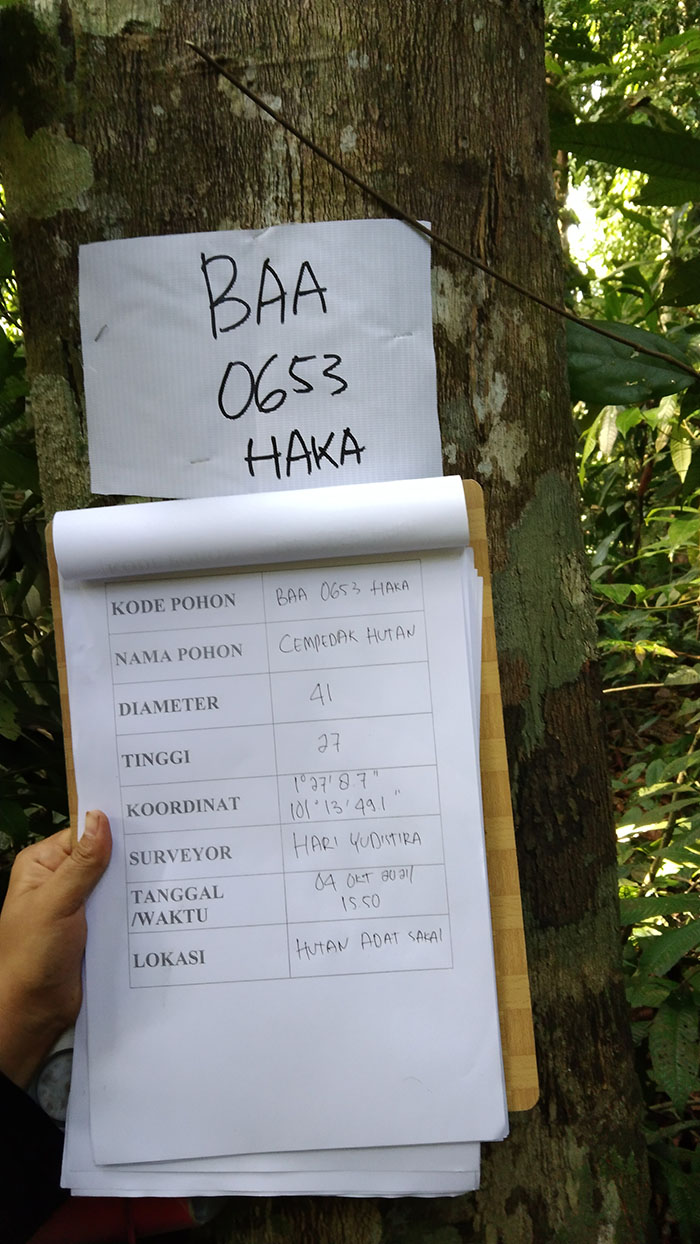 BAA
0653
HAKA
KODE POHON BAA 0653 HAKA
NAMA POHON CEMPEDAK HUTAN
DIAMETER 41
TINGGI 27
KOORDINAT 1°27'8.7"
101°13'49.1"
SURVEYOR HARI YUDISTIRA
TANGGAL 04 OKT 2021/
/WAKTU 15 50
LOKASI HUTAN ADAT SAKAI